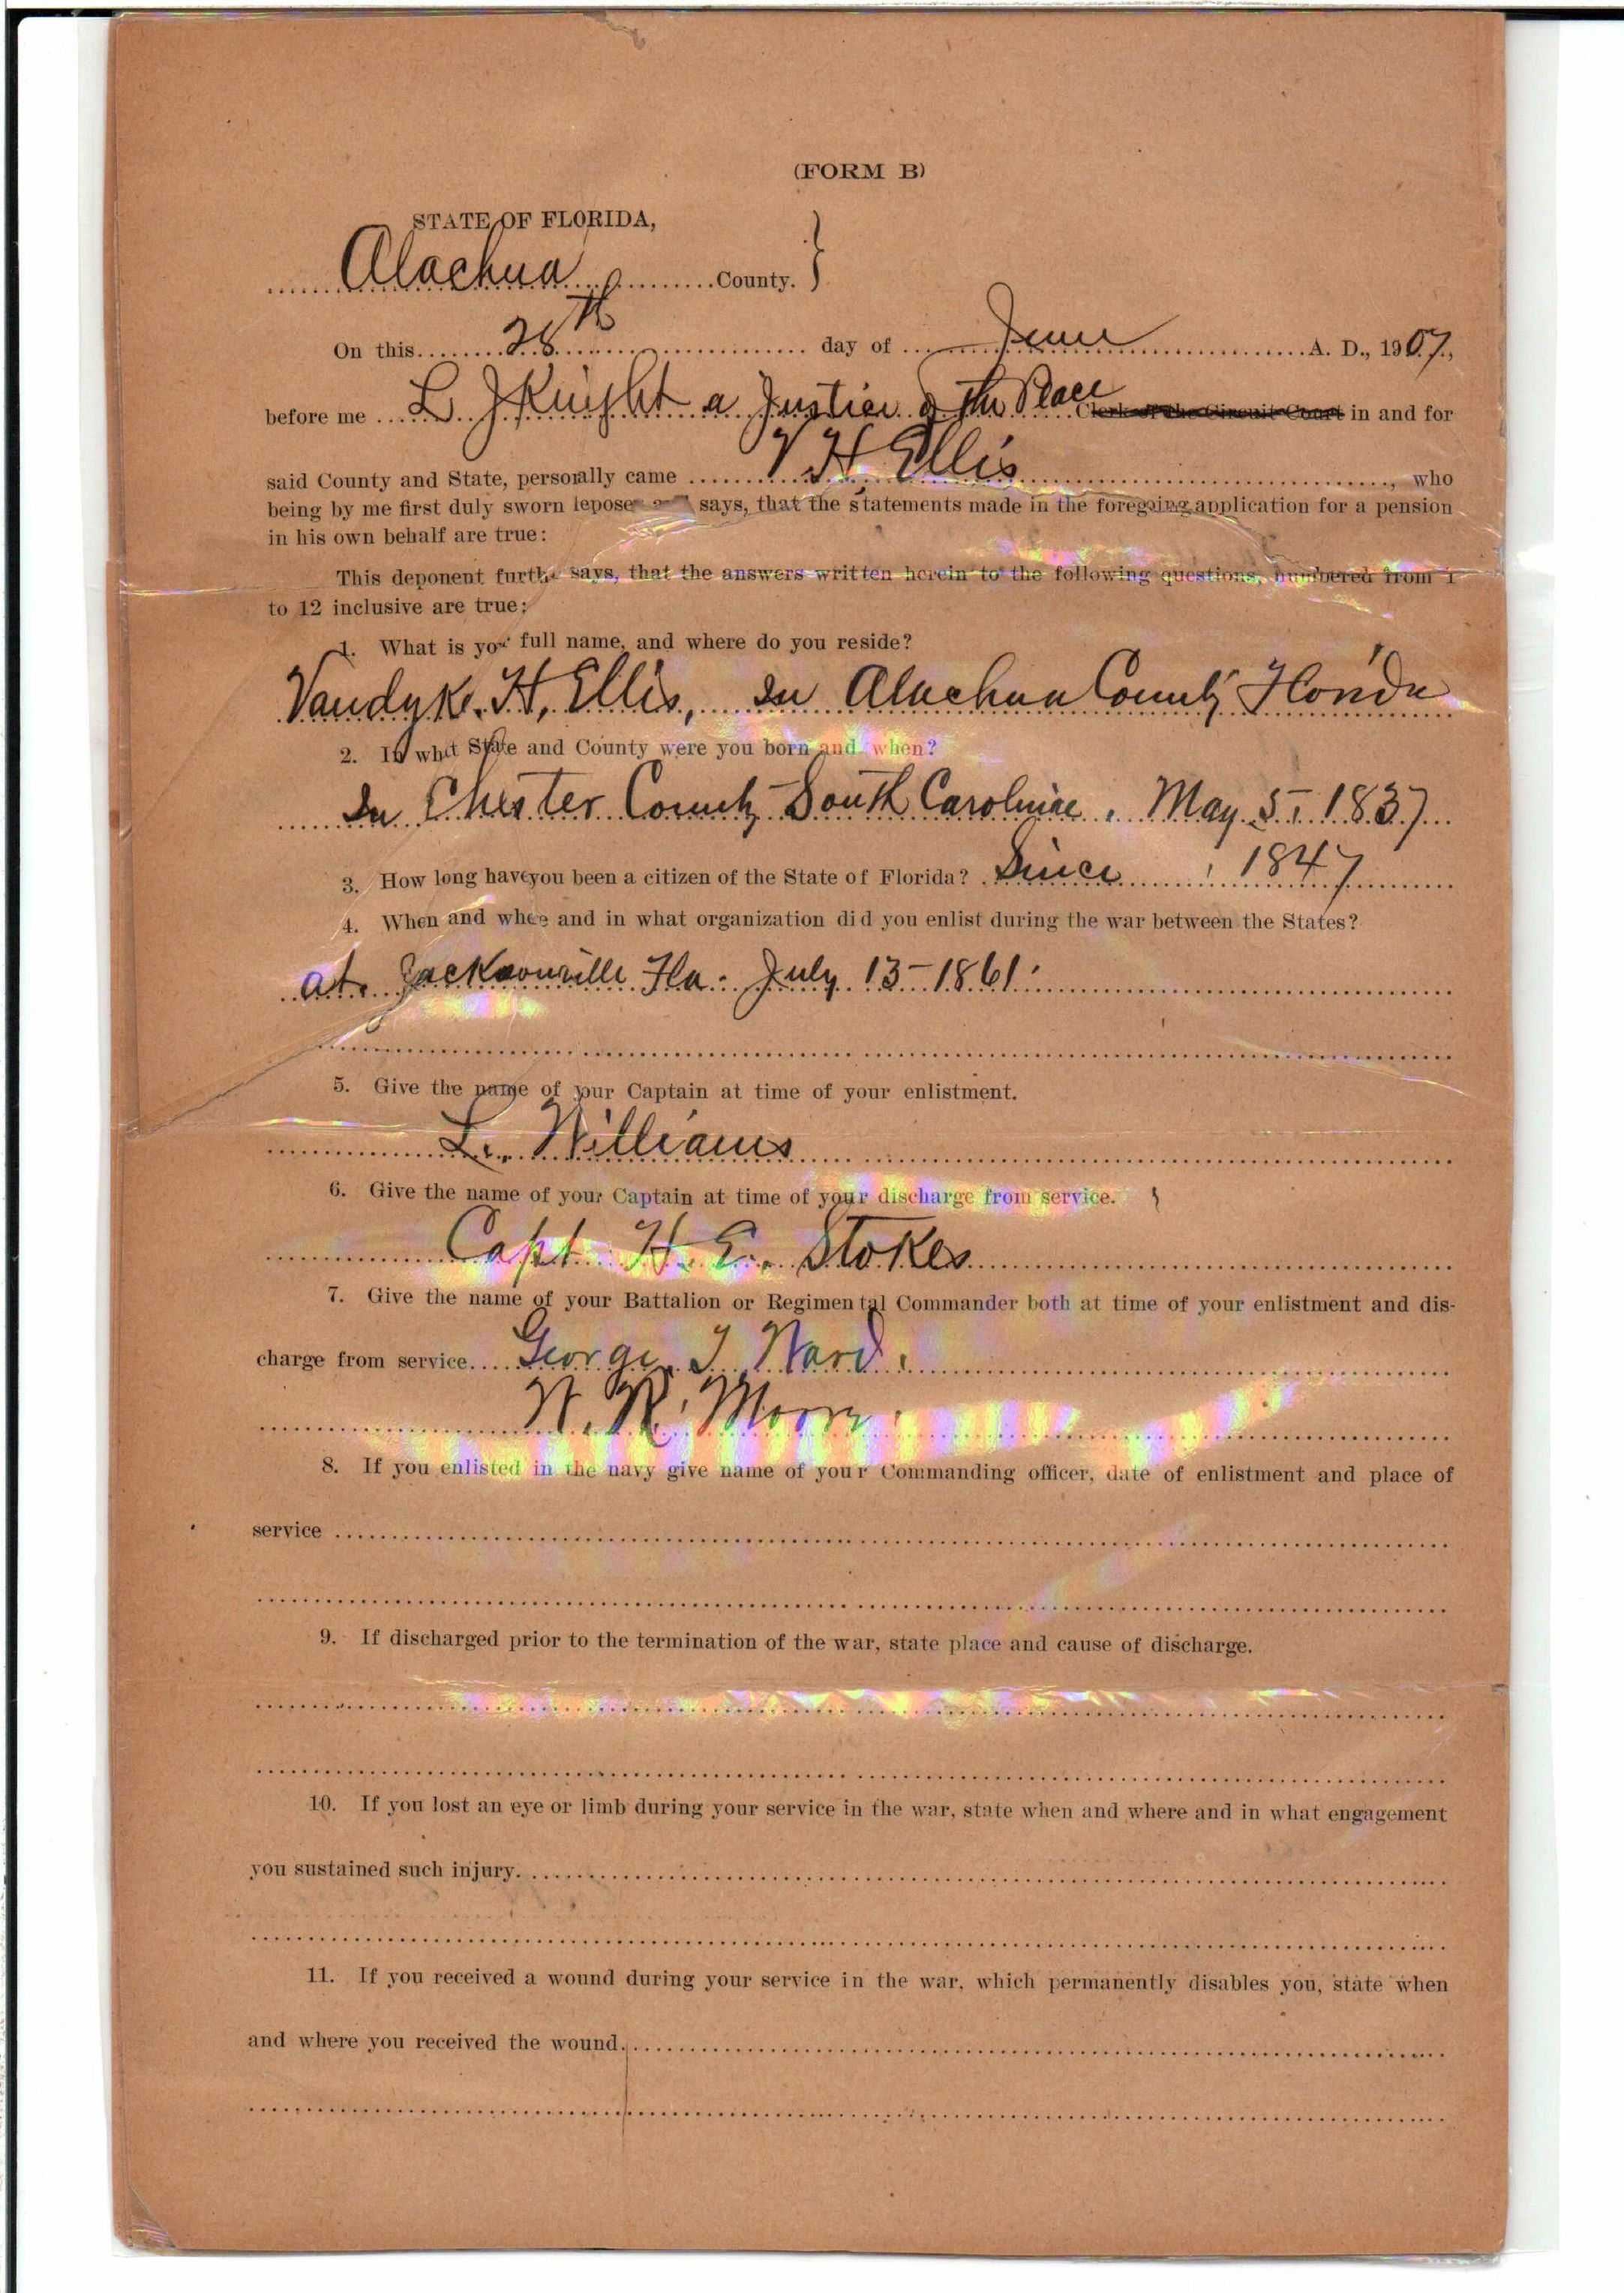 (FORM B)
STATE OF FLORIDA,
Alachua County. }
On this 28th day of June A. D., 1907,
before me L J Knight a Justice of the Peace Clerk of the Circuit Court in and for
said County and State, personally came V H Ellis, who
being by me first duly sworn depose and says, that the statements made in the foregoing application for a pension
in his own behalf are true:
This deponent further says, that the answers written herein to the following questions, numbered from 1
to 12 inclusive are true:
1. What is your full name, and where do you reside?
Vandyk. H. Ellis, In Alachua County Florida
2. In what State and County were you born and when?
In Chester County South Carolina, May 5- 1837
3. How long have you been a citizen of the State of Florida? Since 1847
4. When and where and in what organization did you enlist during the war between the States?
at Jacksonville Fla. July 13-1861.
5. Give the name of your Captain at time of your enlistment.
L. Williams
6. Give the name of your Captain at time of your discharge from service.
Capt. H. E. Stokes
7. Give the name of your Battalion or Regimental Commander both at time of your enlistment and dis-
charge from service. George T Ward.
W. R. Moore.
8. If you enlisted in the navy give name of your Commanding officer, date of enlistment and place of
service
9. If discharged prior to the termination of the war, state place and cause of discharge.
10. If you lost an eye or limb during your service in the war, state when and where and in what engagement
you sustained such injury.
11. If you received a wound during your service in the war, which permanently disables you, state when
and where you received the wound.